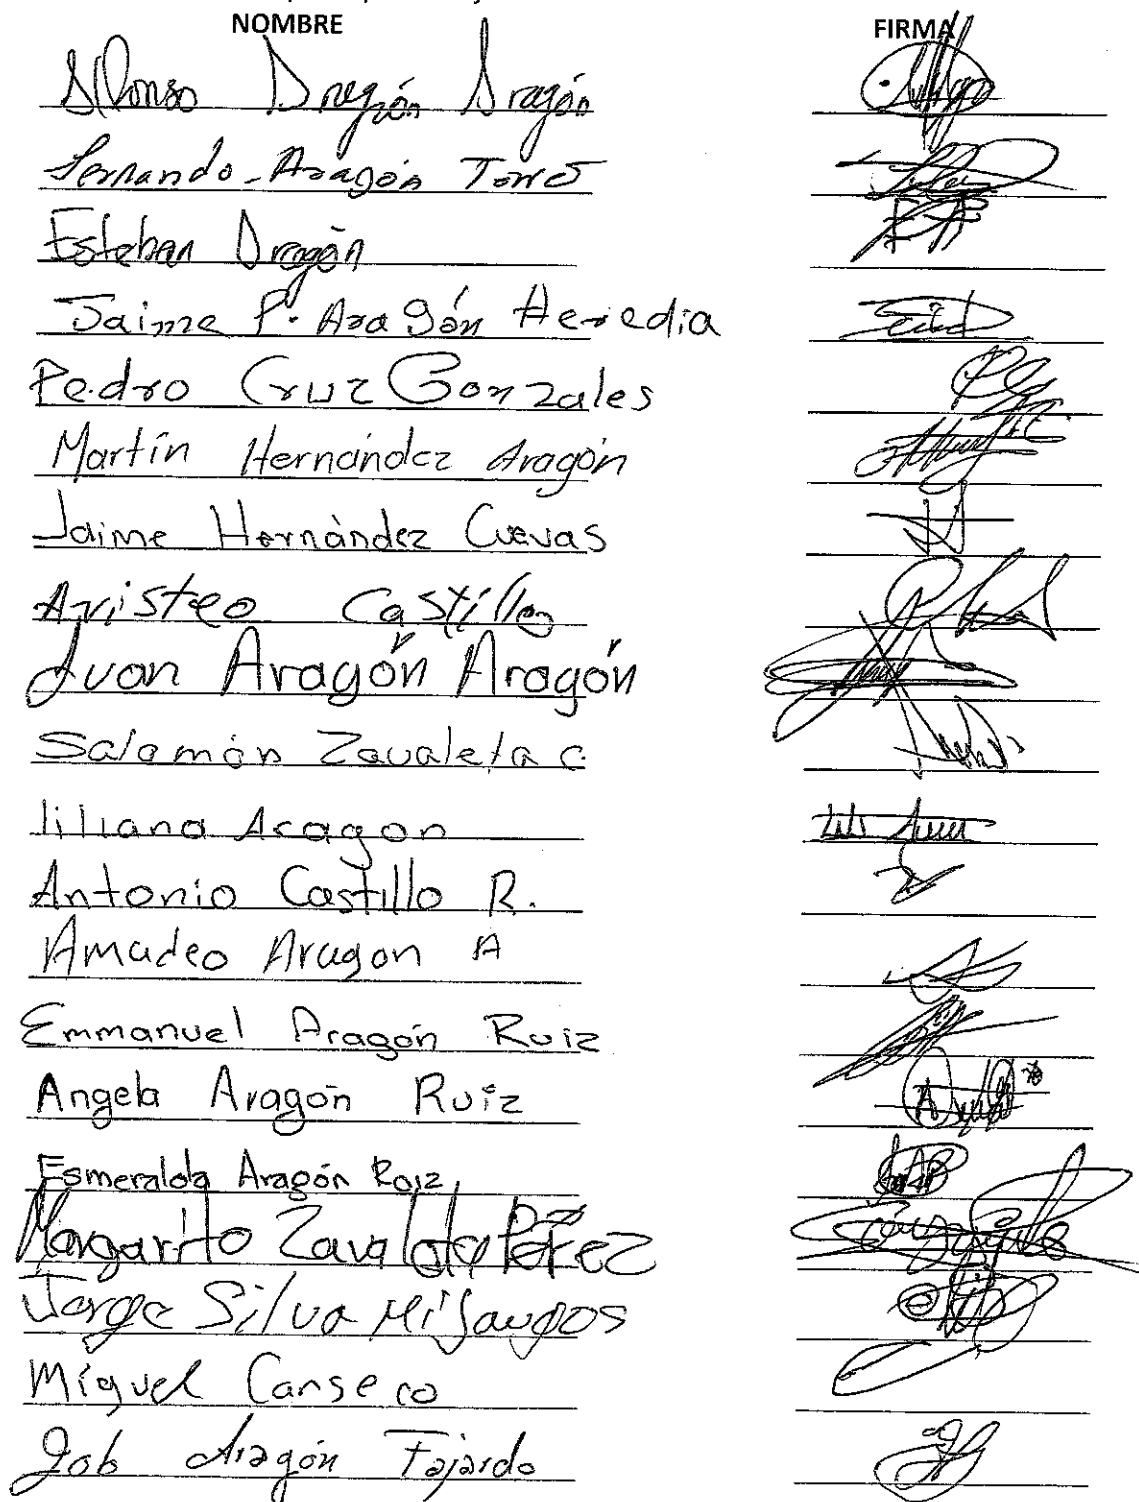 NOMBRE FIRMA
Alfonso Aragón Aragón
Fernando Aragón Torres
Esteban Aragón
Jaime P. Aragón Heredia
Pedro Cruz Gonzales
Martín Hernández Aragón
Jaime Hernández Cuevas
Aristeo Castillo
Juan Aragón Aragón
Salomón Zavaleta C.
liliana Aragon
Antonio Castillo R.
Amadeo Aragon A
Emmanuel Aragón Ruiz
Angela Aragón Ruiz
Esmeralda Aragón Roiz
Margarito Zavaleta Pérez
Jorge Silva Mijangos
Miguel Canseco
Job Aragón Fajardo